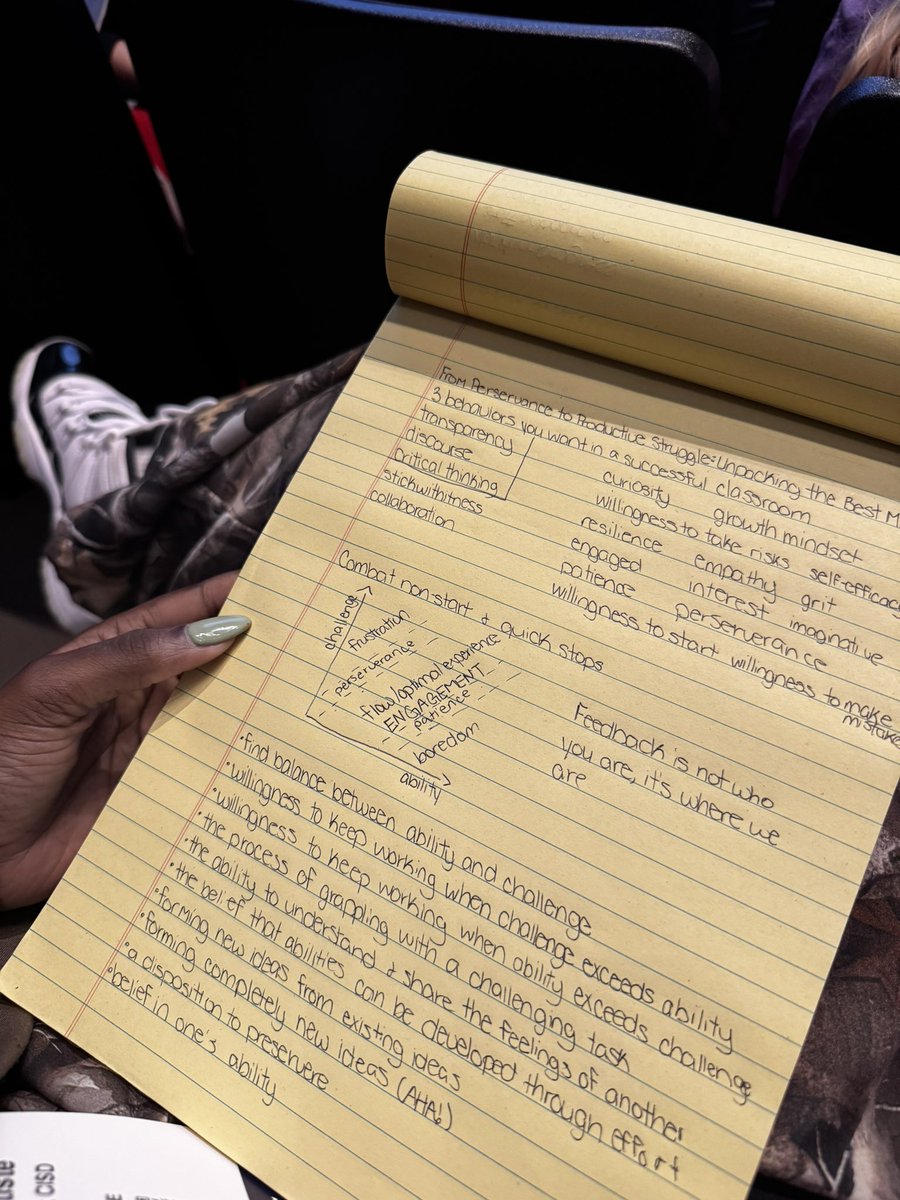 From Perservance to Productive Struggle: Unpacking the Best M
3 behaviors you want in a successful classroom
transparency
discourse
critical thinking
stickwithitness
collaboration
curiosity growth mindset
willingness to take risks self-efficacy
resilience empathy grit
engaged interest imaginative
patience perserverance
willingness to start willingness to make
mistake
Combat non start & quick stops
challenge
frustration
perserverance
flow/optimal experience
ENGAGEMENT
patience
boredom
ability
Feedback is not who
you are, it's where we
are
•find balance between ability and challenge
•willingness to keep working when challenge exceeds ability
•willingness to keep working when ability exceeds challenge
•the process of grappling with a challenging task
•the ability to understand & share the feelings of another
•the belief that abilities can be developed through effort
•forming new ideas from existing ideas
•forming completely new ideas (AHA!)
•a disposition to preservere
•belief in one's ability
CISD